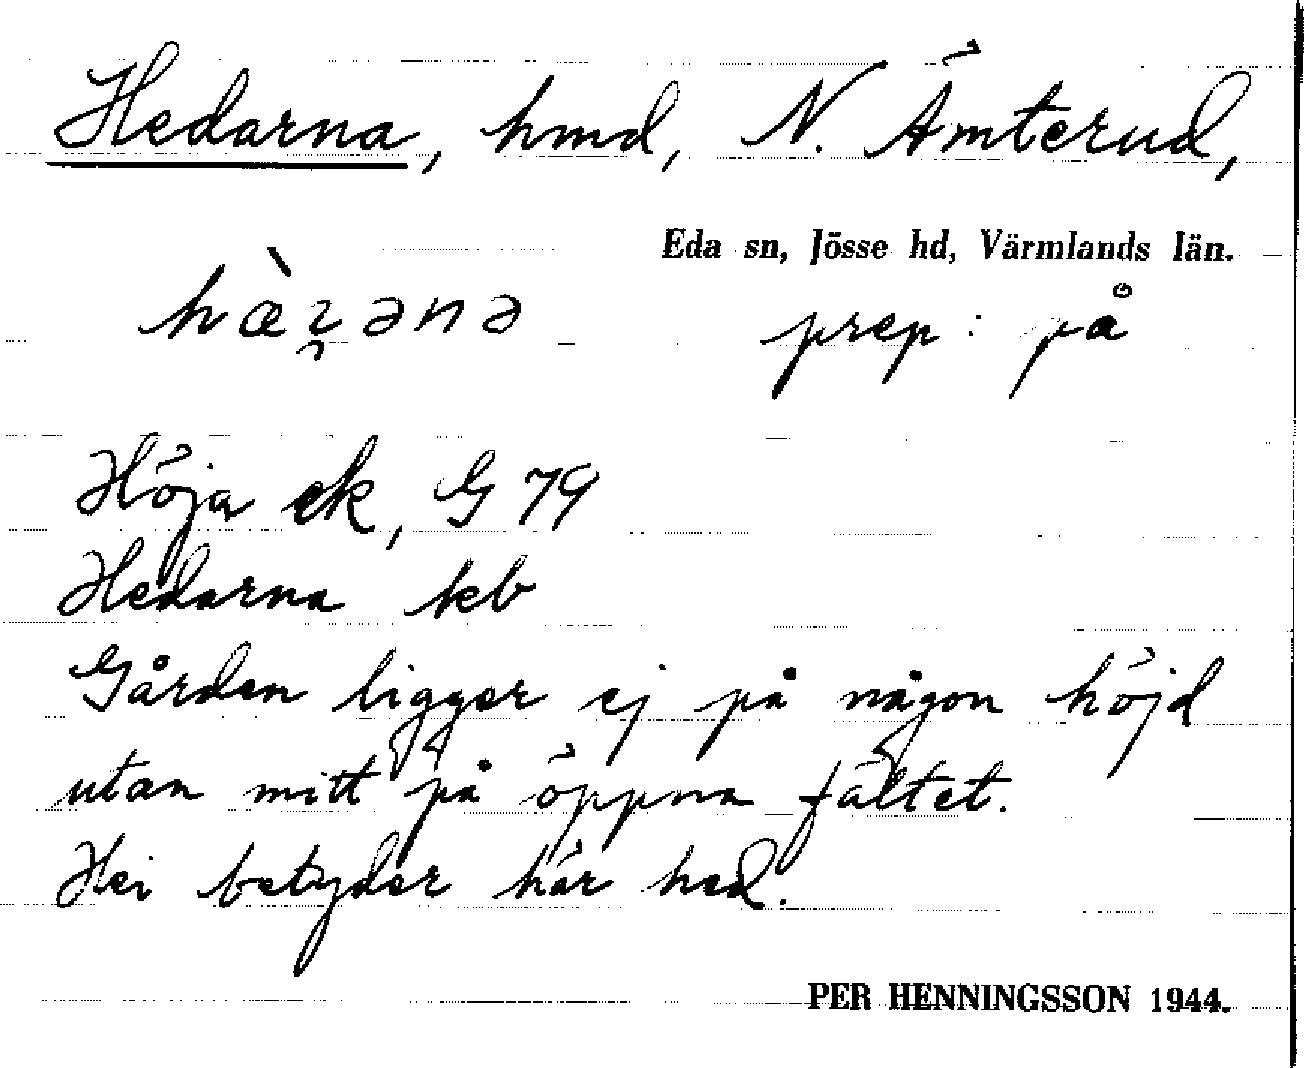 Hedarna, hmd, N. Ämterud,
Eda sn, Jösse hd, Värmlands län.
prep: på
Höja ek, G 79
Hedarna kb
Gården ligger ej på någon höjd
utan mitt på öppna fältet.
Hei betyder här hed.
PER HENNINGSSON 1944.